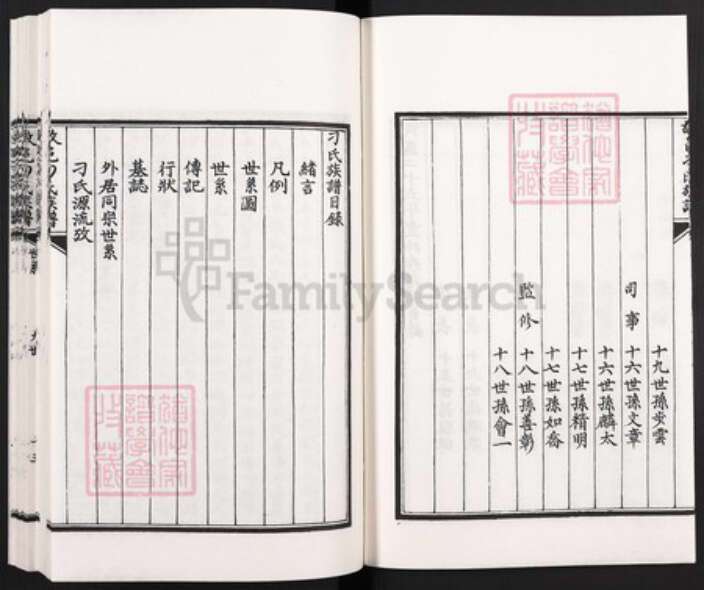 十九世孫步雲
司事 十六世孫文章
十六世孫麟太
十七世孫精明
十七世孫如喬
監修 十八世孫善彰
十八世孫會一
刁氏族譜目錄
緒言
凡例
世系圖
世系
傳記
行狀
墓誌
外居同宗世系
刁氏源流攷
FamilySearch